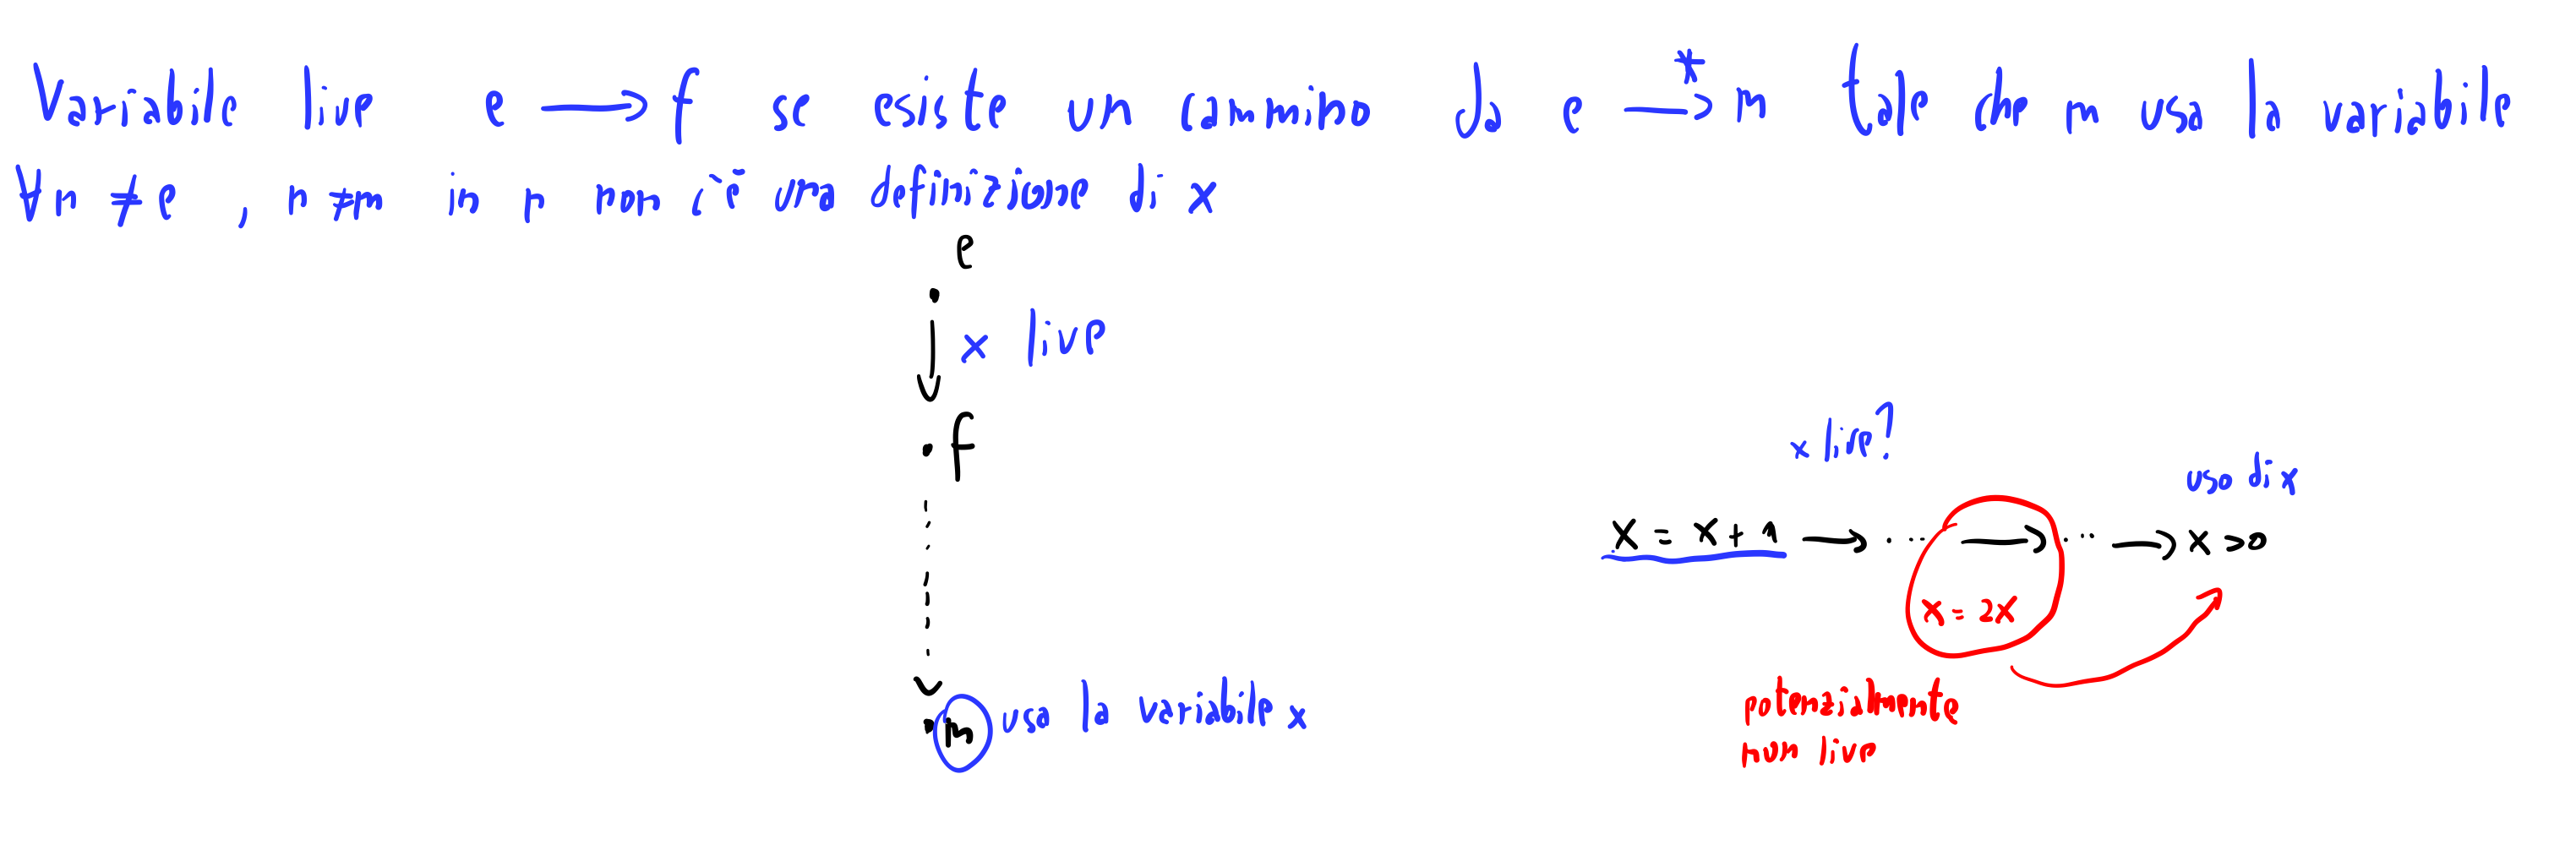 Variabile live e ⟶ f se esiste un cammino da e ⟶* m tale che m usa la variabile
∀n ≠ e , n ≠ m in n non c'è una definizione di x
e
x live
f
m usa la variabile x
x live?
uso di x
x = x+1 ⟶ ... ⟶ ... ⟶ x >0
x = 2x
potenzialmente
non live